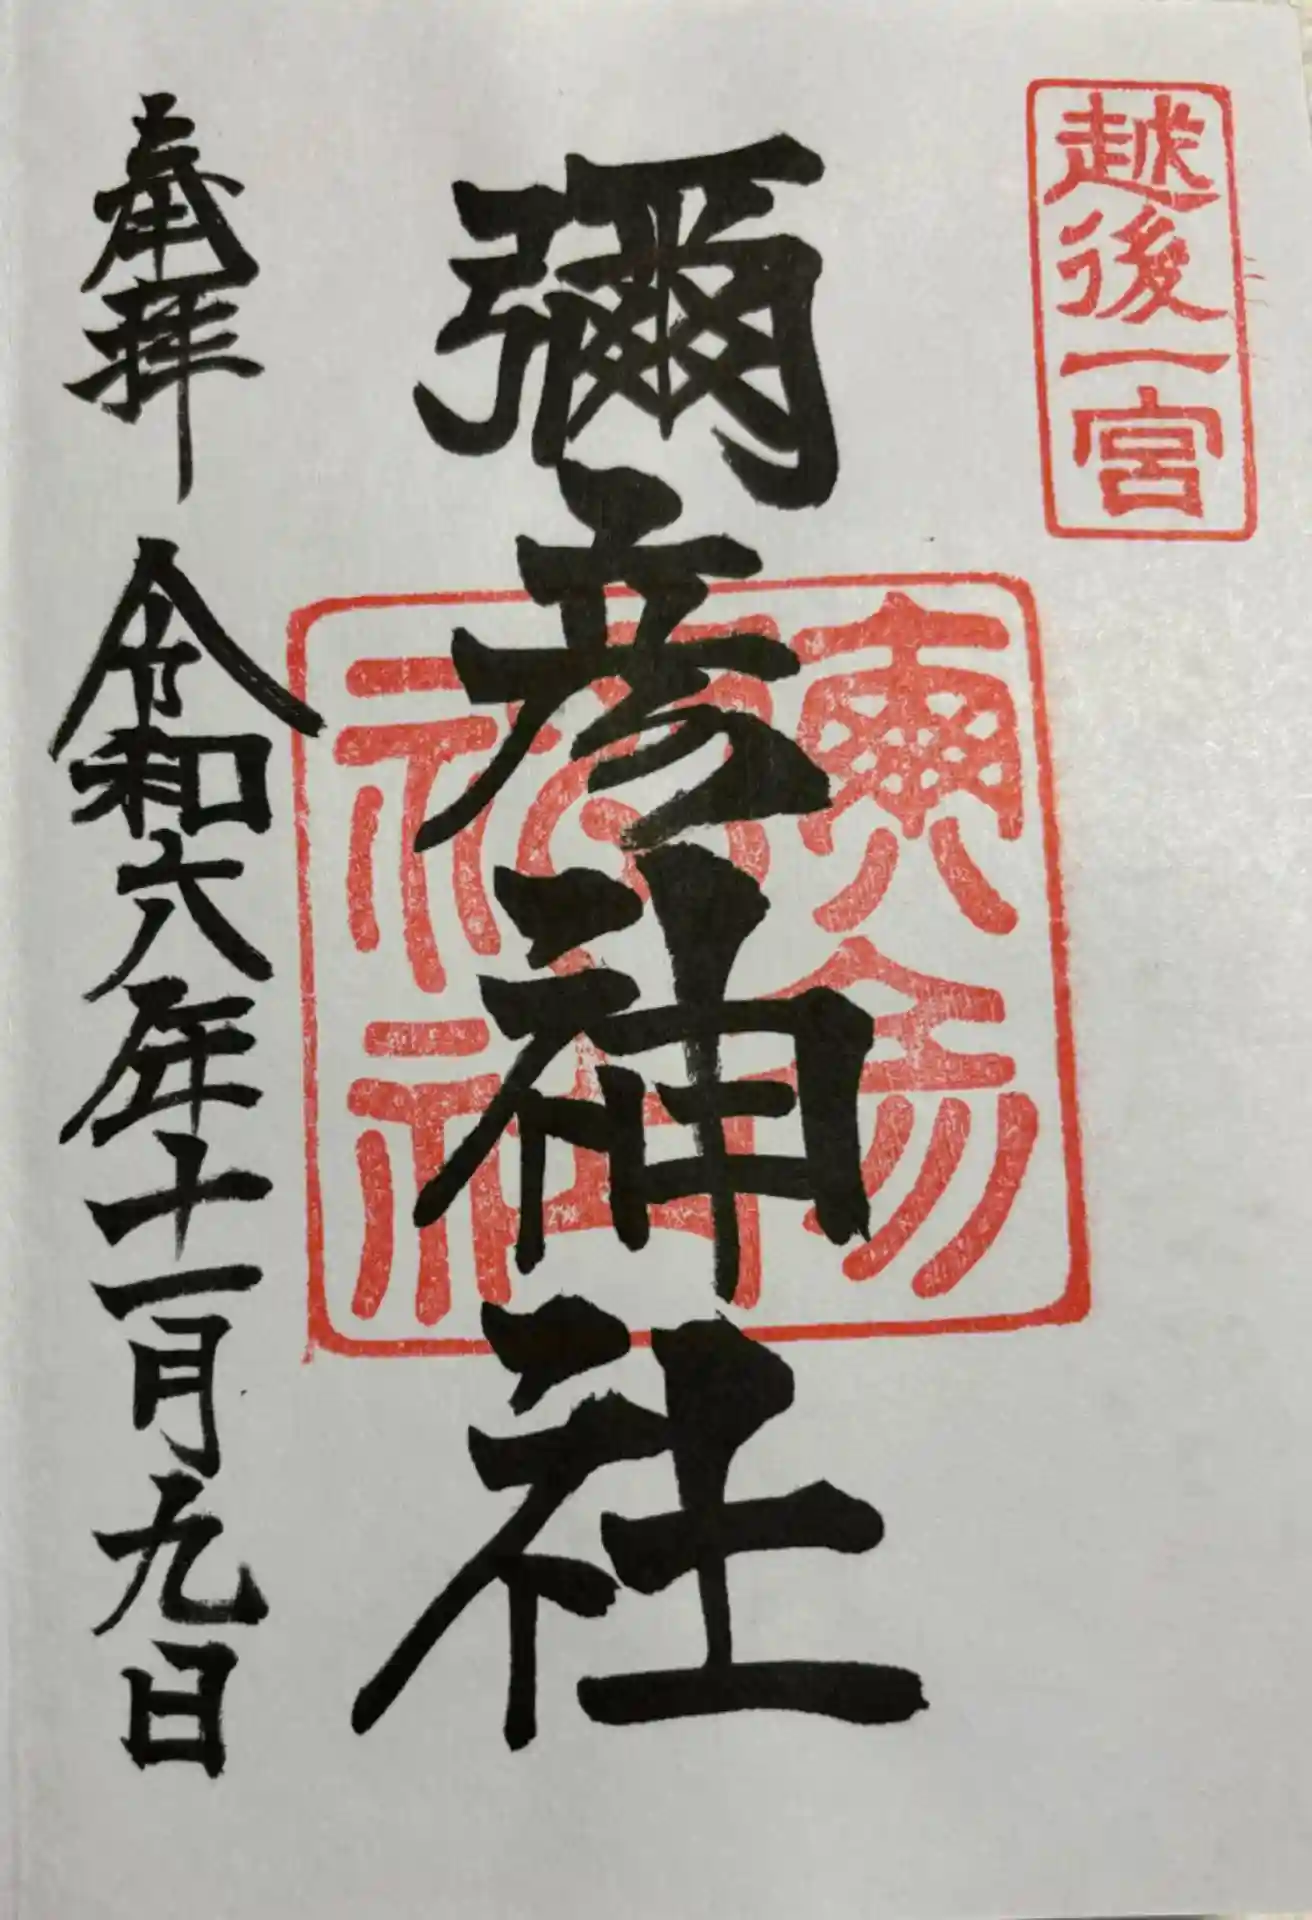 越後一宮
彌彦神社
奉拝 令和六年十一月九日